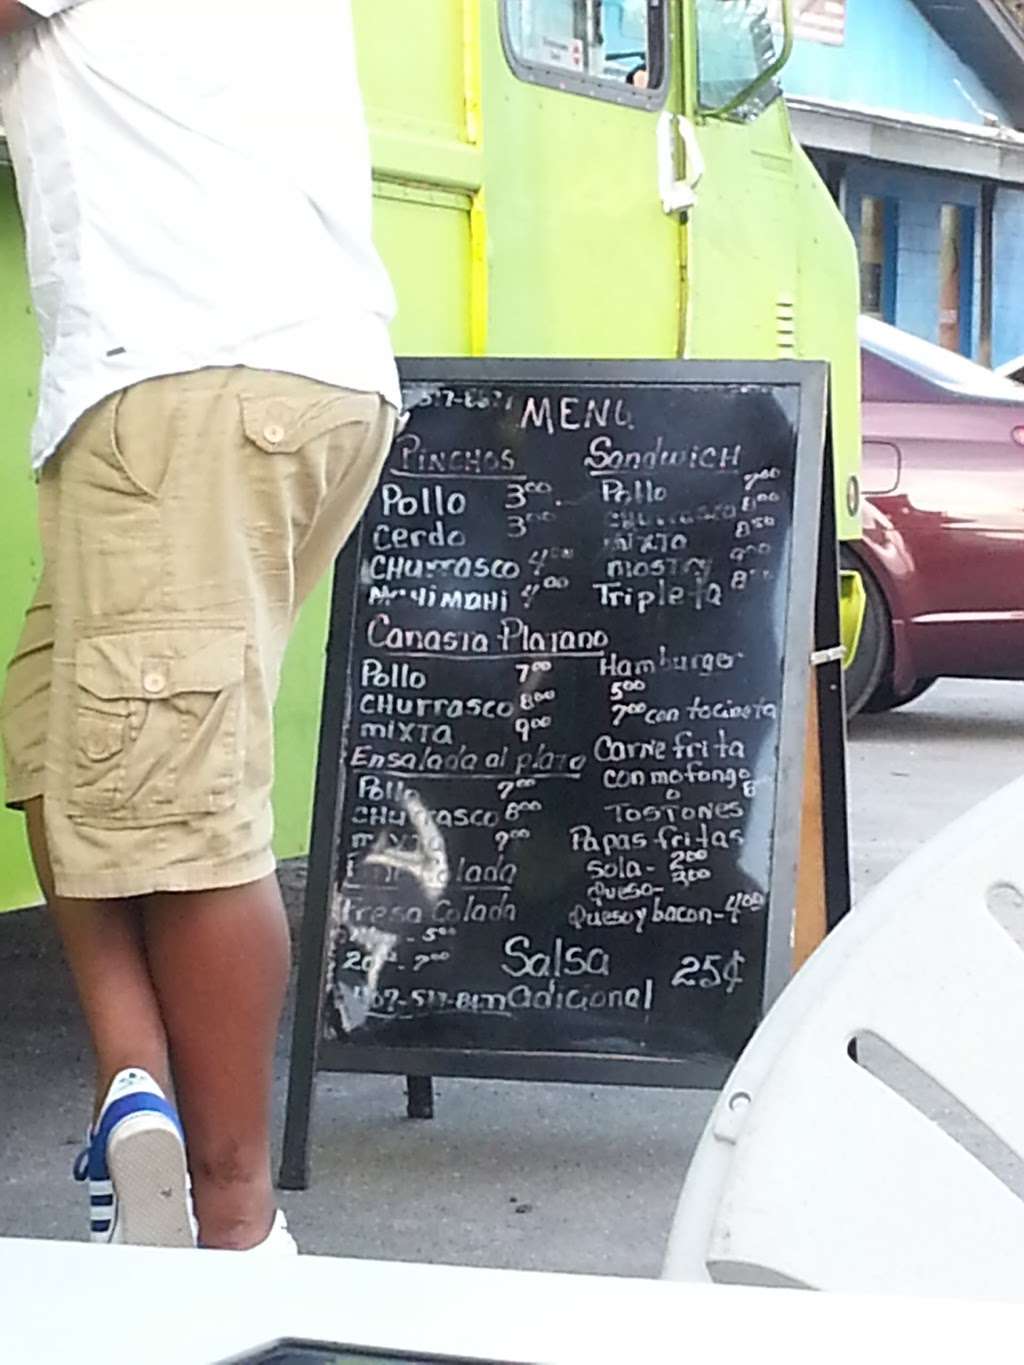 MENU
PINCHOS
Pollo 3.00
Cerdo 3.00
CHURRASCO 4.00
MAHIMAHI 4.00
Canasta Platano
Pollo 7.00
CHURRASCO 8.00
mixta 9.00
Ensalada al plato
Pollo 7.00
CHURRASCO 8.00
mixta 9.00
Colada
Fresa Colada
- 5.00
- 7.00
SandwicH
Pollo 7.00
CHURRASCO 8.00
mixto 8.50
mostry 9.00
Tripleta 8
Hamburger
5.00
7.00 con tocineta
Carne frita
con mofongo
o 8
TOSTONES
Papas fritas
Sola - 2.00
Queso - 3.00
Queso y bacon - 4.00
Salsa
adicional 25¢